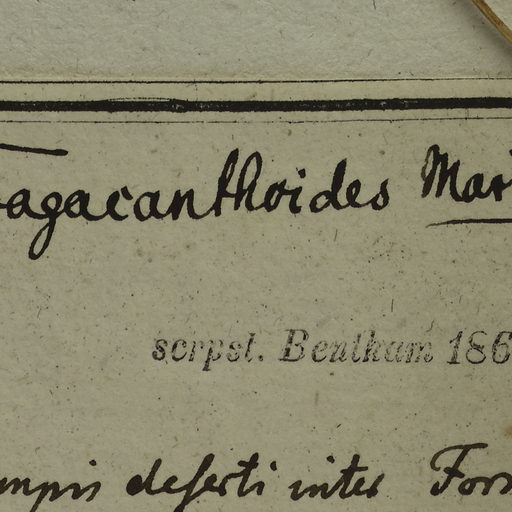 Tragacanthoides Mar
scrpst. Bentham 186
ampis deserti inter For